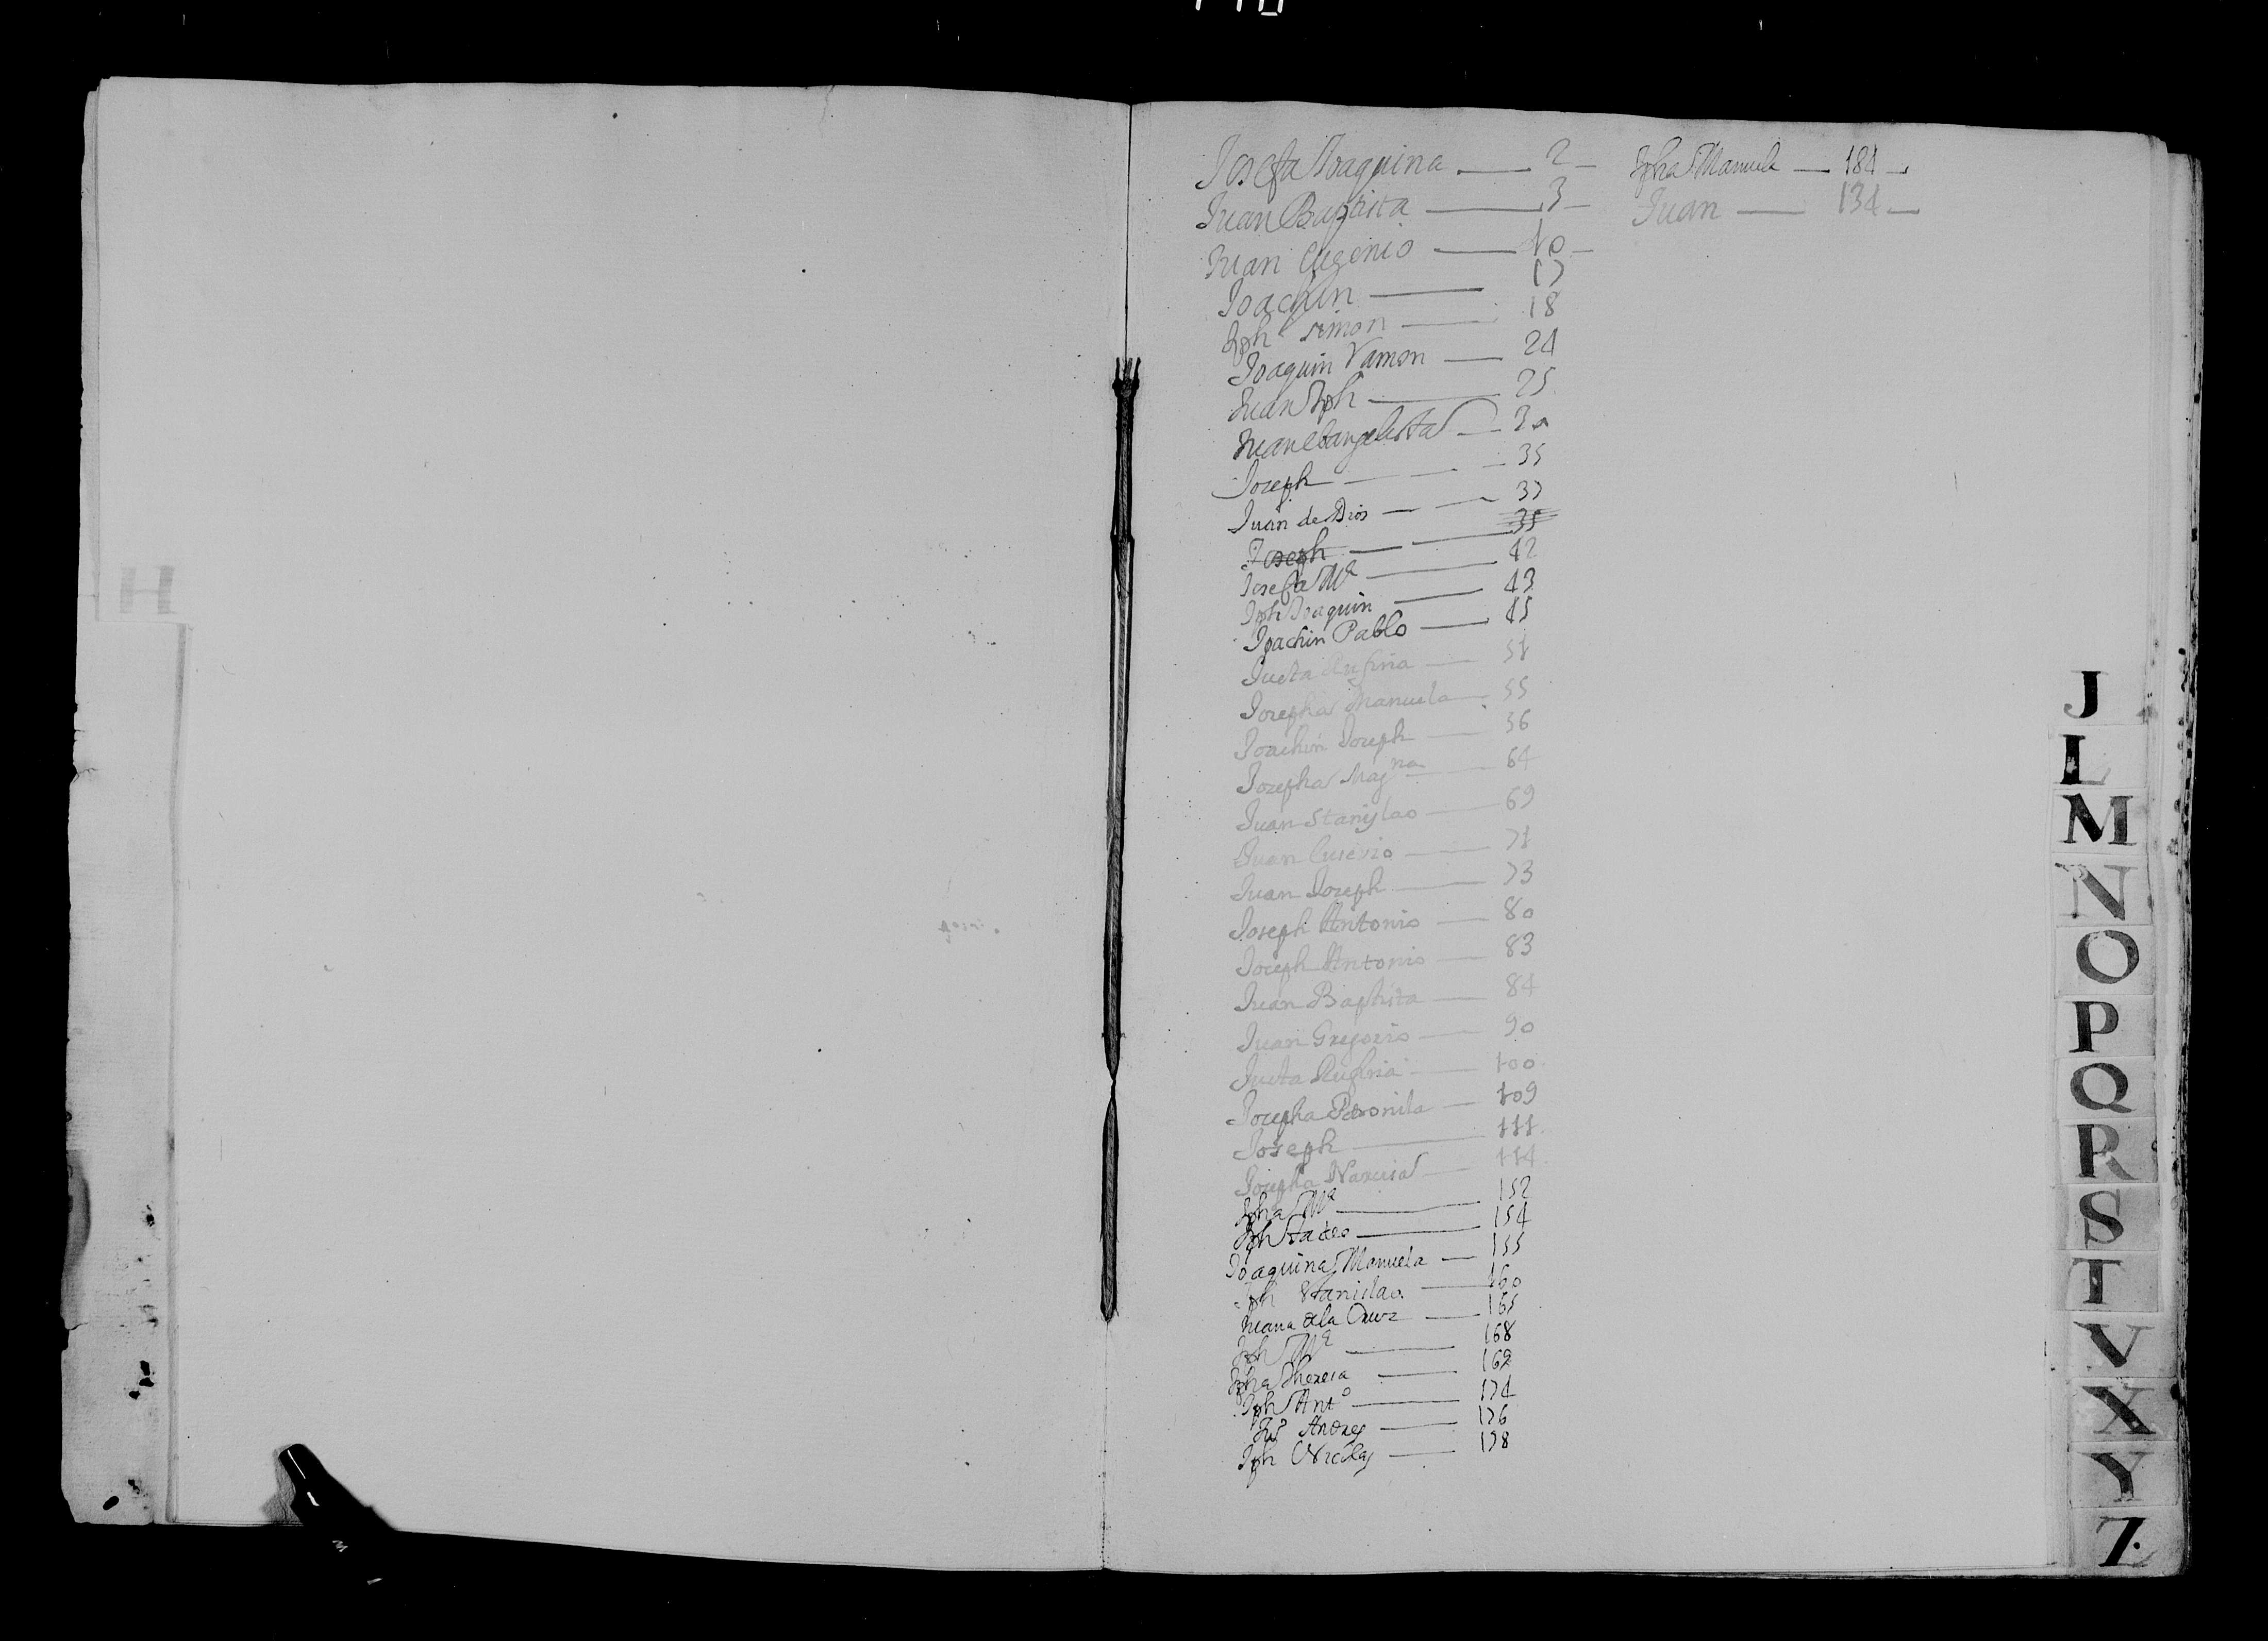 Josefa Joaquina — 2 —
Juan Baptista — 3 —
Juan Eugenio — 10 —
Joachin — 17
Jph Simon — 18
Joaquin Ramon — 24
Juan Jph — 25
Juan Evangelista — 30
Joseph — 35
Juan de Dios — 37
Joseph — 35
Josefa Mª — 42
Jph Joaquin — 43
Joachin Pablo — 45
Justa Rufina — 51
Josepha Manuela — 55
Joachin Joseph — 56
Josepha Magna — 64
Juan Stanislao — 69
Juan Eusevio — 71
Juan Joseph — 73
Joseph Antonio — 80
Joseph Antonio — 83
Juan Baptista — 84
Juan Gregorio — 90
Justa Rufina — 100
Josepha Petronila — 109
Joseph — 111
Josepha Narcisa — 114
Jpha Mª — 152
Jph Tadeo — 154
Joaquina Manuela — 155
Jph Stanislao — 160
Juana de la Cruz — 165
Jph Mª — 168
Jpha Theresa — 169
Jph Antº — 174
Andres — 176
Jph Nicolas — 178
Jpha Manuela — 184 —
Juan — 134 —
H
J
L
M
N
O
P
Q
R
S
T
V
X
Y
Z